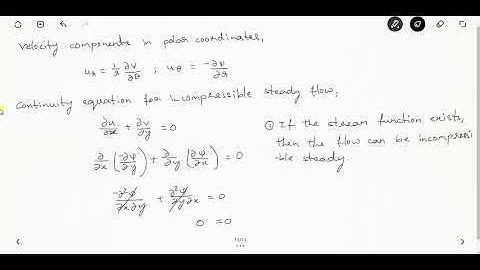 Velocity components in polar coordinates,
u_r = 1/r ∂ψ/∂θ ; u_θ = -∂ψ/∂r
continuity equation for incompressible steady flow,
∂u/∂x + ∂v/∂y = 0
∂/∂x (-∂ψ/∂y) + ∂/∂y (∂ψ/∂x) = 0
-∂²ψ/∂x∂y + ∂²ψ/∂y∂x = 0
0 = 0
① If the stream function exists,
then the flow can be incompressi
-ble steady.